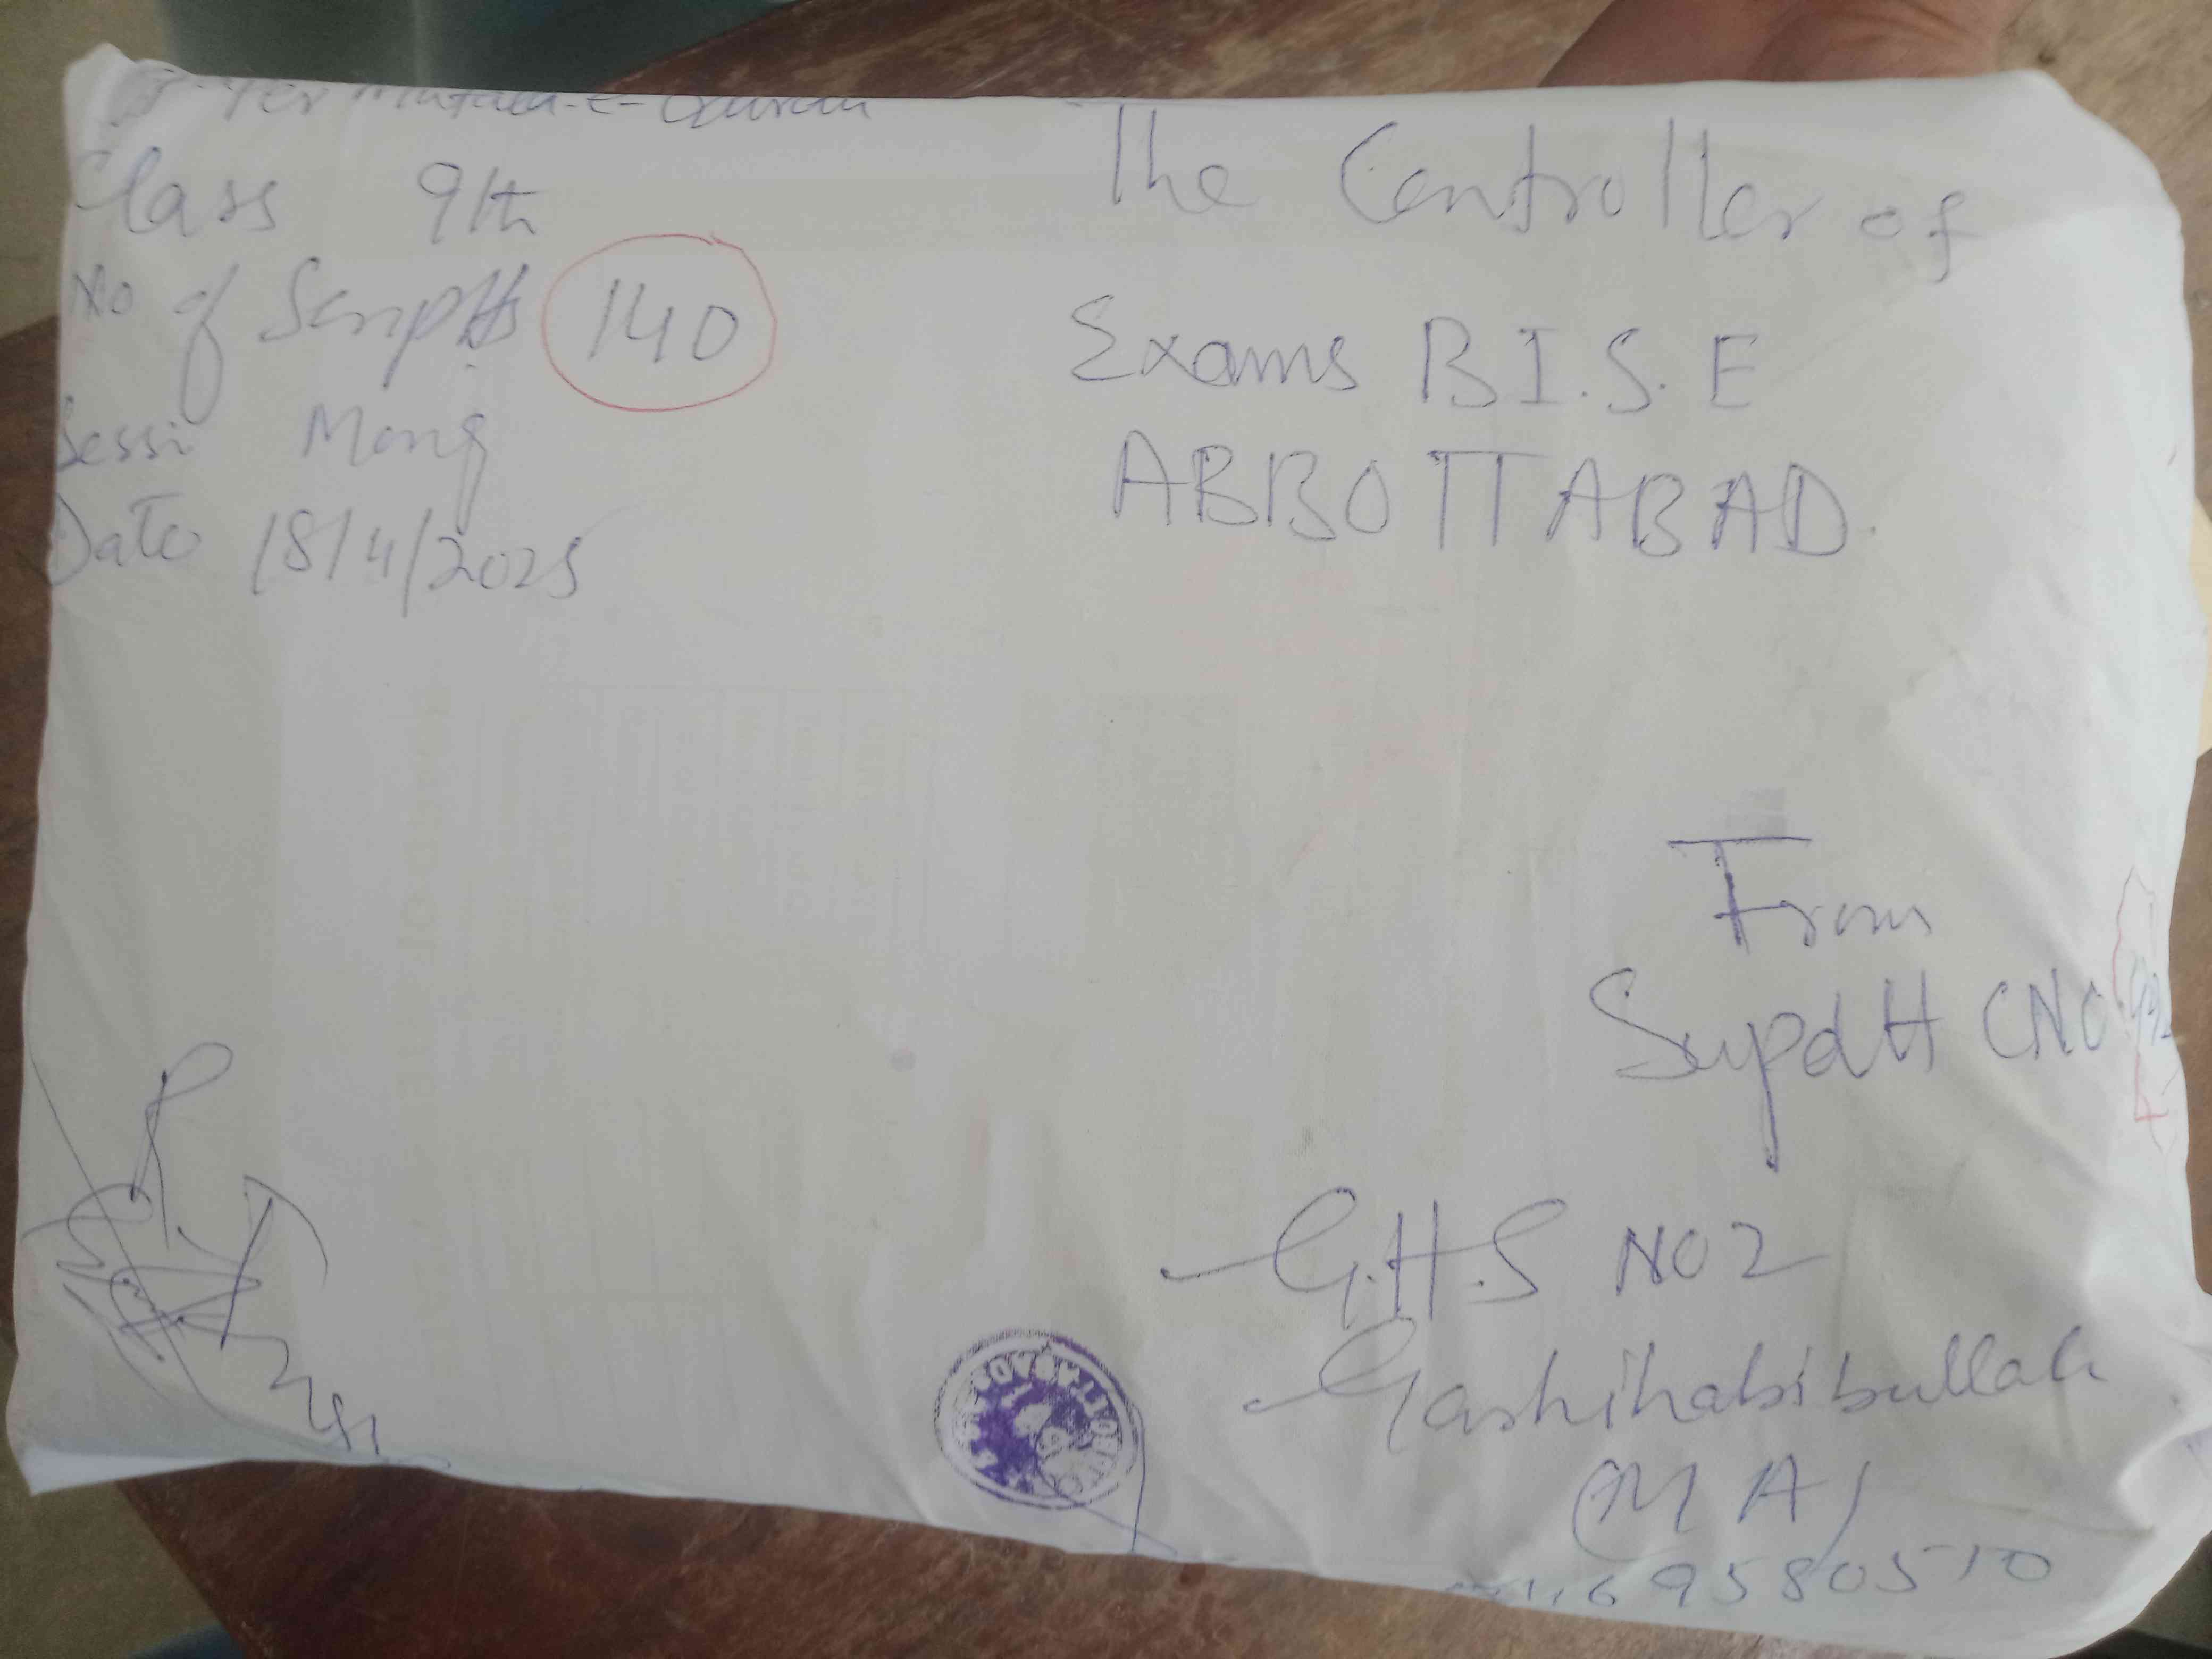 Class 9th
No of Scriptts 140
Sessi Mong
Date 18/4/2025
The Controller of
Exams B.I.S.E
ABBOTTABAD.
From
Supdtt CNO
G.H.S NO2
Garhihabibullah
(M A)
69580510